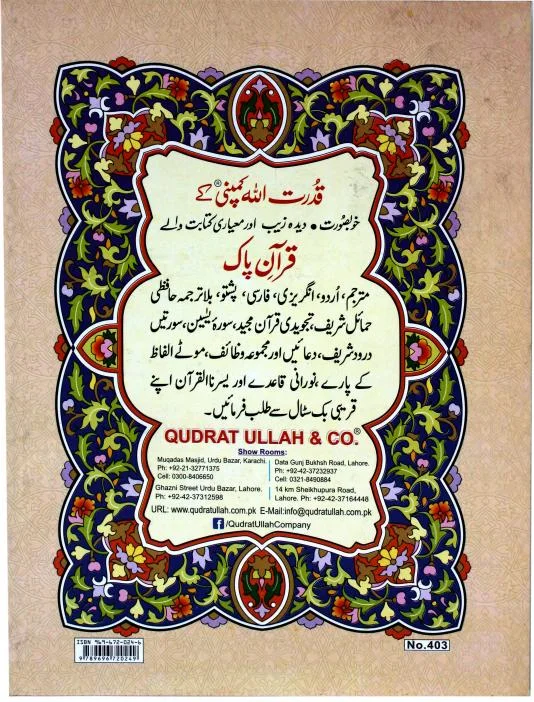 قدرت اللہ کمپنی® کے
خوبصورت • دیدہ زیب اور معیاری کتابت والے
قرآنِ پاک
مترجم، اُردو، انگریزی، فارسی، پشتو، بلا ترجمہ حافظی
حمائل شریف، تجویدی قرآن مجید، سورۂ یٰسین، سورتیں
درود شریف، دعائیں اور مجموعہ وظائف، موٹے الفاظ
کے پارے، نورانی قاعدے اور یسرنا القرآن اپنے
قریبی بک سٹال سے طلب فرمائیں۔
QUDRAT ULLAH & CO.®
Show Rooms:
Muqadas Masjid, Urdu Bazar, Karachi.
Ph: +92-21-32771375
Cell: 0300-8406650
Data Gunj Bukhsh Road, Lahore.
Ph: +92-42-37232937
Cell: 0321-8490884
Ghazni Street Urdu Bazar, Lahore.
Ph: +92-42-37312598
14 km Sheikhupura Road,
Lahore. Ph: +92-42-37164448
URL: www.qudratullah.com.pk E-Mail:info@qudratullah.com.pk
/QudratUllahCompany
ISBN 969-672-024-6
9 789696 720249
No.403